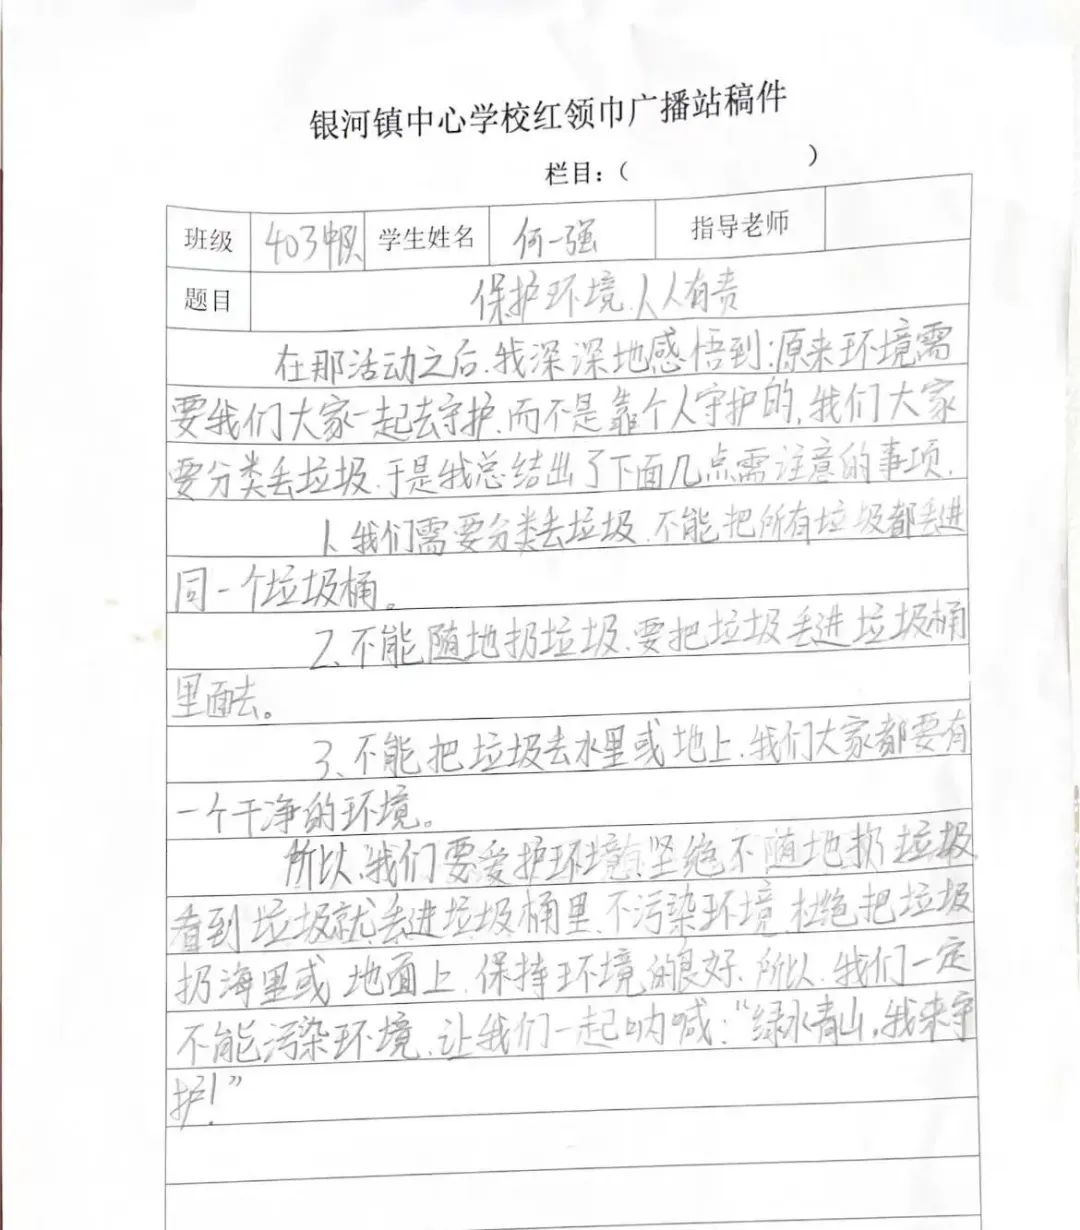 银河镇中心学校红领巾广播站稿件
栏目：（ ）
班级 403中队 学生姓名 何一强 指导老师
题目 保护环境、人人有责
在那活动之后、我深深地感悟到：原来环境需
要我们大家一起去守护、而不是靠个人守护的，我们大家
要分类丢垃圾、于是我总结出了下面几点需注意的事项、
1、我们需要分类去垃圾、不能把所有垃圾都丢进
同一个垃圾桶。
2、不能随地扔垃圾、要把垃圾丢进垃圾桶
里面去。
3、不能把垃圾去水里或地上、我们大家都要有
一个干净的环境。
所以、我们要爱护环境、坚绝不随地扔垃圾
看到垃圾就丢进垃圾桶里、不污染环境、杜绝把垃圾
扔海里或地面上、保持环境的良好、所以、我们一定
不能污染环境、让我们一起呐喊：“绿水青山，我来守
护！”